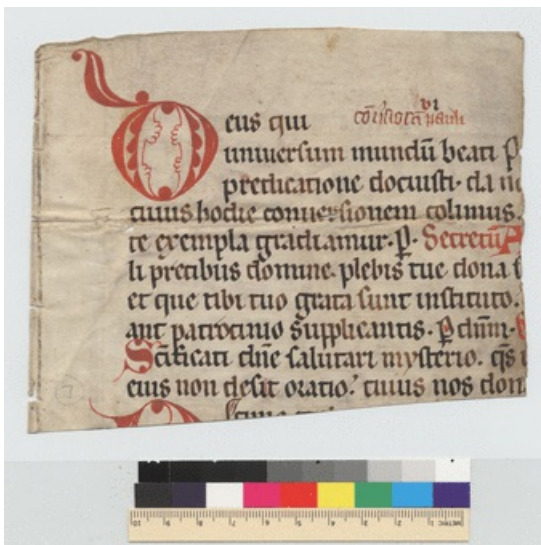 Deus qui
vi
cōv̄sio scī pauli
universum mundū beati P
predicatione docuisti· da no
cuius hodie conversionem colimus.
te exempla gradiamur· P̲· Secretū A
li precibus domine· plebis tue dona s
et que tibi tuo grata sunt instituto.
ant patrocinio supplicantis· P̲ dn̄m·
Sc̄ificati dn̄e salutari mysterio. q̄s
eius non desit oratio? cuius nos don